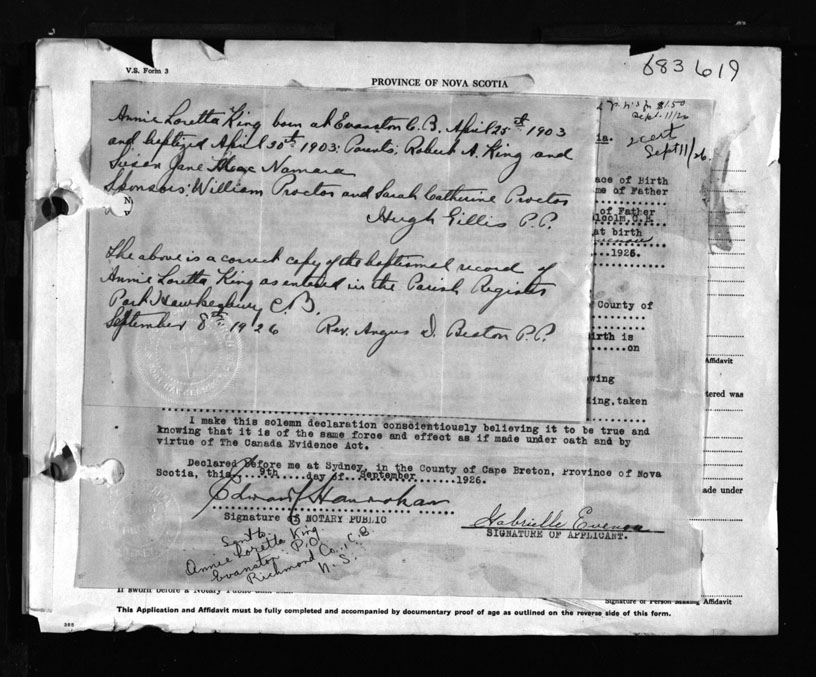 683619
V.S. Form 3
PROVINCE OF NOVA SCOTIA
Annie Loretta King born at Evanston C.B. April 25th 1903
and baptized April 30th 1903; Parents; Robert A. King and
Susan Jane Mac Namara
Sponsors: William Proctor and Sarah Catherine Proctor
Hugh Gillis P.P.
The above is a correct copy of the baptismal record of
Annie Loretta King as entered in the Parish Register
Port Hawkesbury C.B.
September 8th 1926 Rev. Angus D. Beaton P.P.
$1.50
Sept. 11/26
2 cert
Sept 11/26.
ia.
ace of Birth
me of Father
of Father
lcolm, C.B.
at birth
1926.
County of
irth is
on
Affidavit
wing
tered was
King, taken
I make this solemn declaration conscientiously believing it to be true and
knowing that it is of the same force and effect as if made under oath and by
virtue of The Canada Evidence Act.
Declared before me at Sydney, in the County of Cape Breton, Province of Nova
Scotia, this 9th day of September 1926.
ade under
Edward J Hanrahan
Signature of NOTARY PUBLIC
Gabrielle
SIGNATURE OF APPLICANT.
Sent to
Annie Loretta King
Evanston P.O.
Richmond Co., C.B.
N.S.
If sworn before a Notary Public
Signature of Person Making Affidavit
This Application and Affidavit must be fully completed and accompanied by documentary proof of age as outlined on the reverse side of this form.